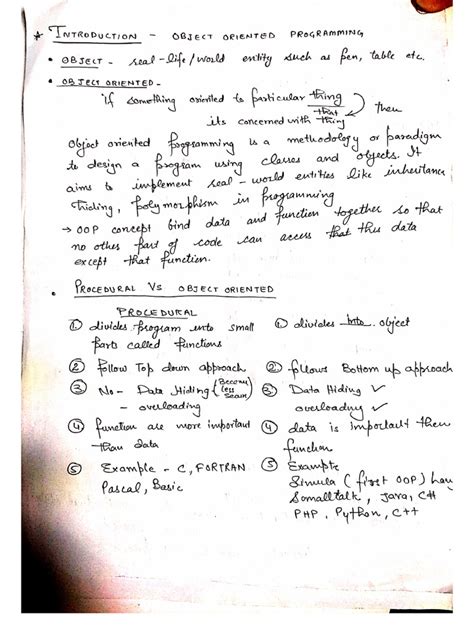 * INTRODUCTION - OBJECT ORIENTED PROGRAMMING
• OBJECT - real-life/world entity such as pen, table etc.
• OBJECT ORIENTED -
if something oriented to particular thing
that
then
its concerned with thing
Object oriented programming is a methodology or paradigm
to design a program using classes and objects. It
aims to implement real-world entities like inheritance
hiding, polymorphism in programming
→ OOP concept bind data and function together so that
no other part of code can access that this data
except that function.
• PROCEDURAL VS OBJECT ORIENTED
PROCEDURAL
① divides program into small
parts called functions
② follow Top down approach
③ No - Data Hiding (Become less
- overloading
④ function are more important
than data
⑤ Example - C, FORTRAN
Pascal, Basic
① divides into object
② follows Bottom up approach
③ Data Hiding ✓
overloading ✓
④ data is important then
function
⑤ Example
Simula (first OOP)
Somalltalk, Java, C#
PHP, Python, C++